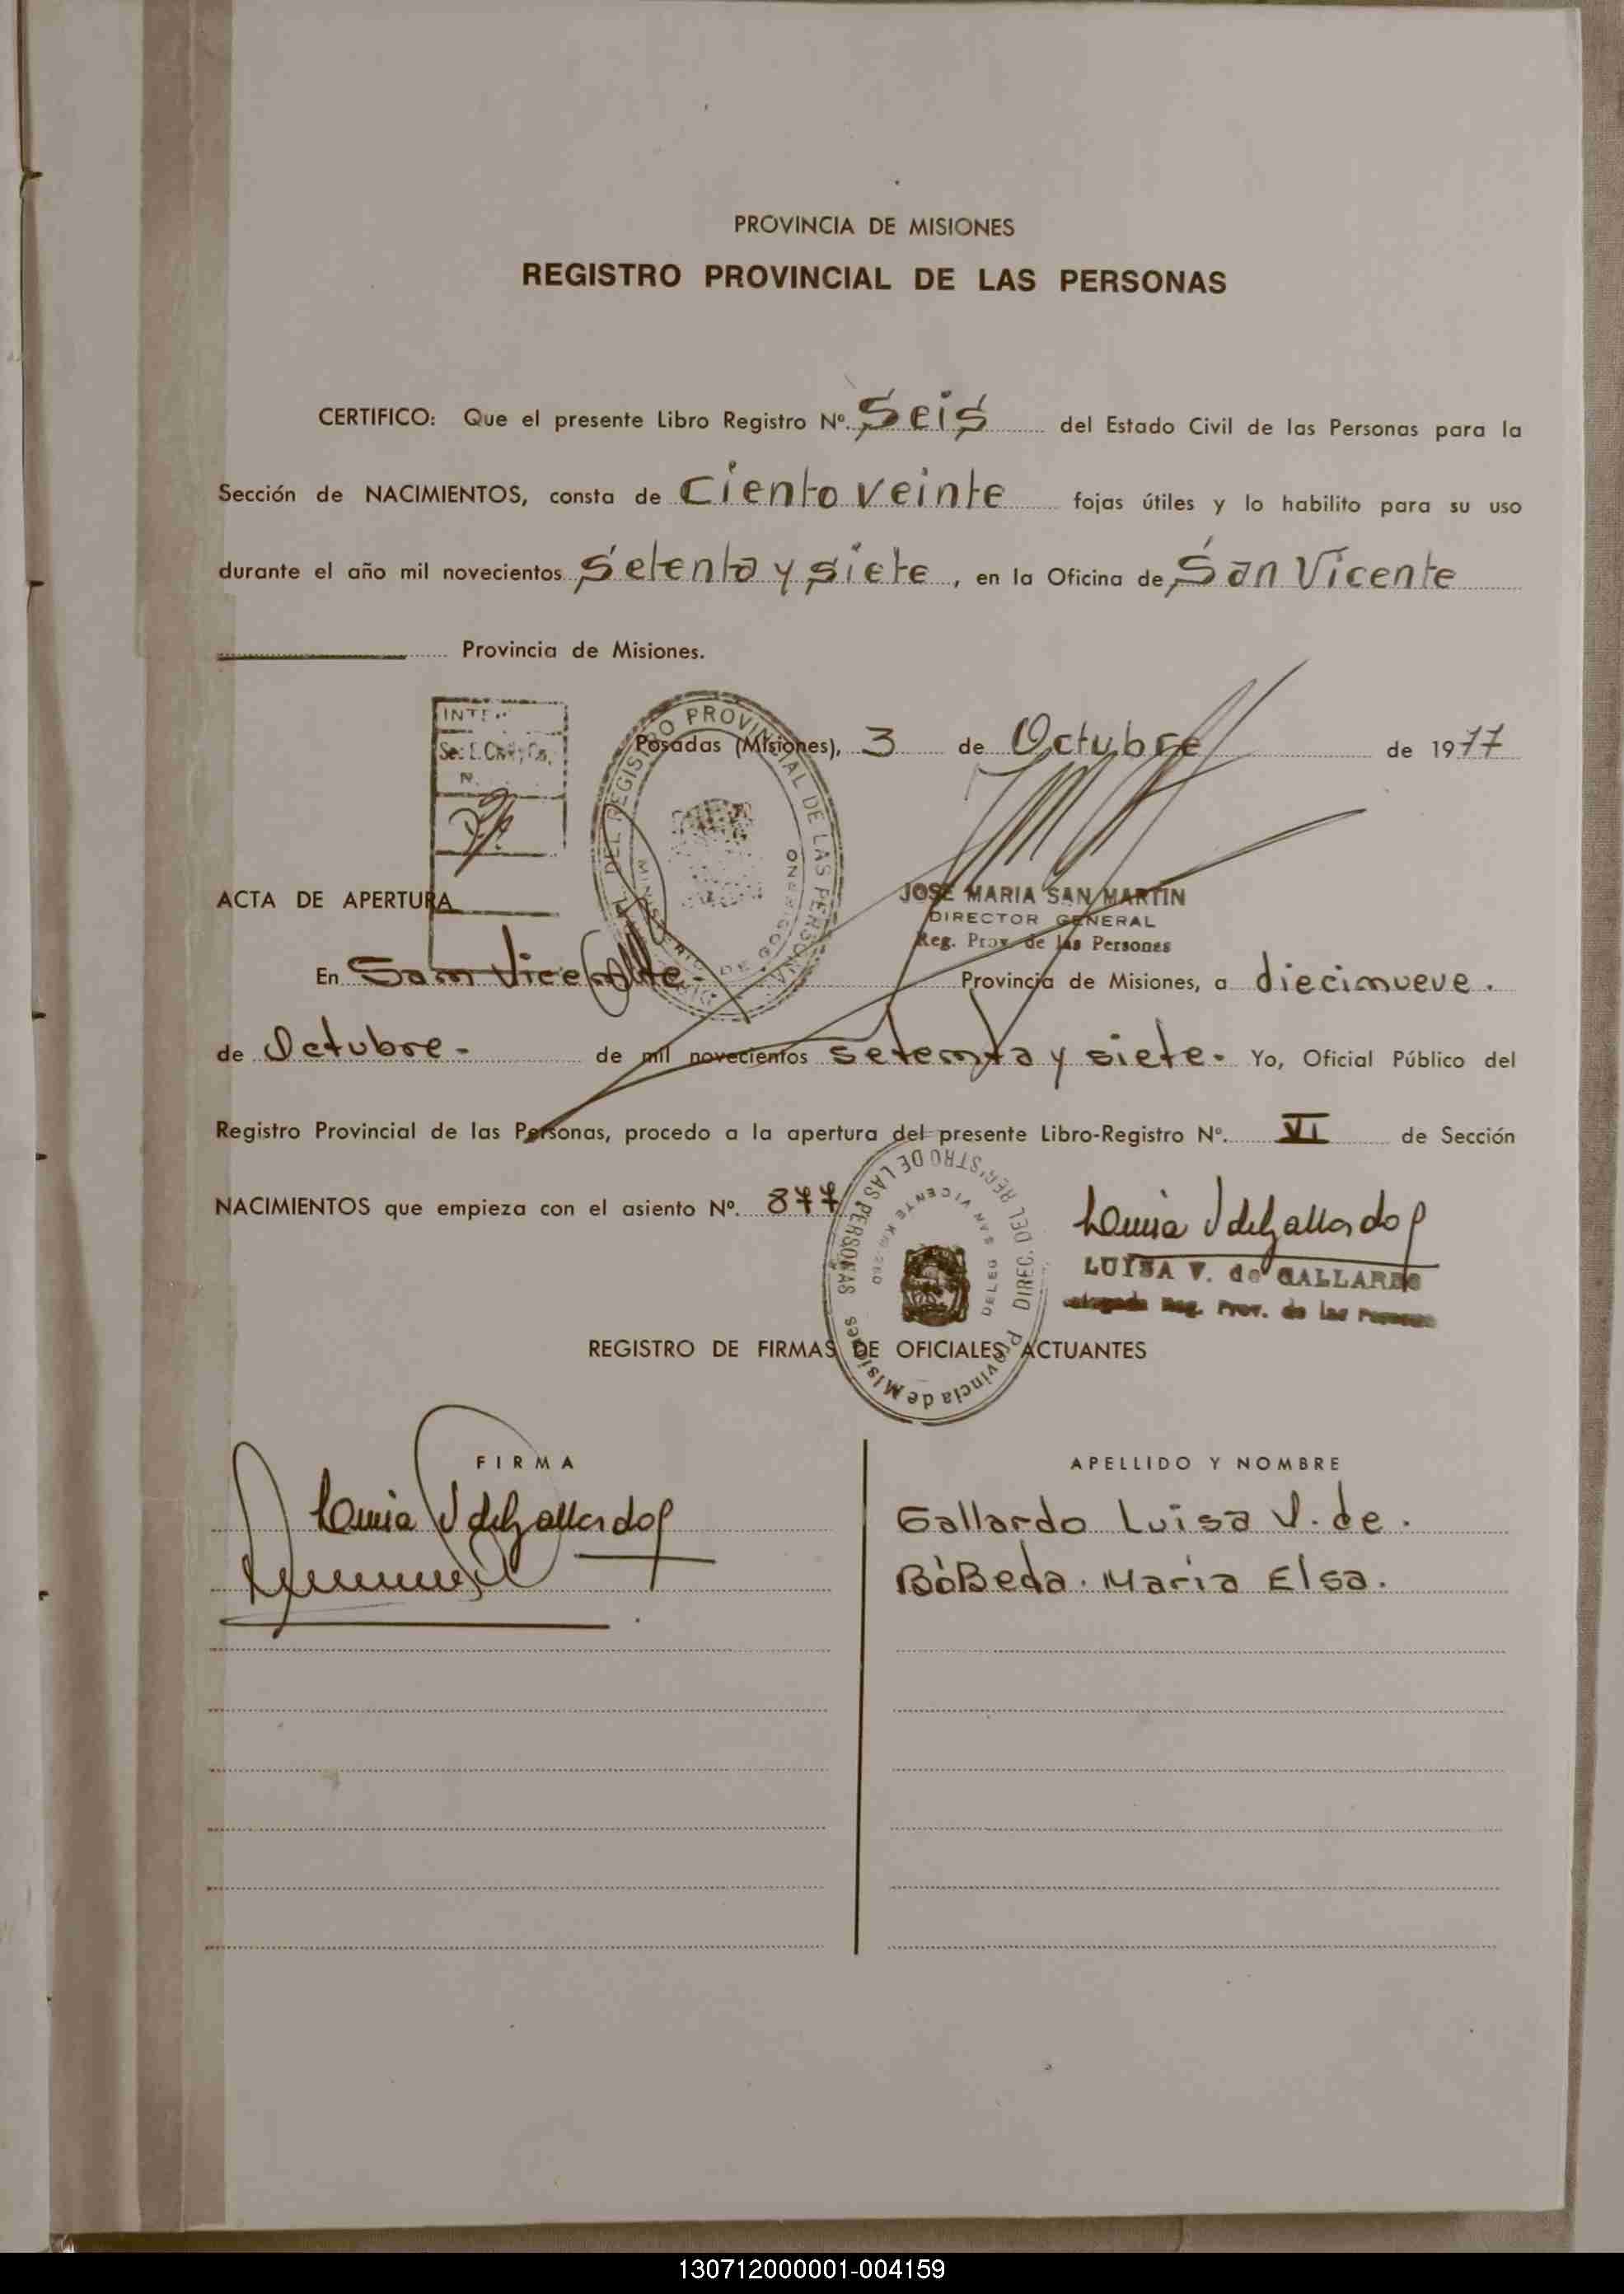 PROVINCIA DE MISIONES
REGISTRO PROVINCIAL DE LAS PERSONAS
CERTIFICO: Que el presente Libro Registro Nº. Seis del Estado Civil de las Personas para la
Sección de NACIMIENTOS, consta de Ciento veinte fojas útiles y lo habilito para su uso
durante el año mil novecientos Setenta y siete, en la Oficina de San Vicente
Provincia de Misiones.
DEL REGISTRO PROVINCIAL DE LAS PERSONAS
MINISTERIO DE GOBIERNO
Posadas (Misiones), 3 de Octubre de 1977
JOSE MARIA SAN MARTIN
DIRECTOR GENERAL
Reg. Prov. de las Persones
ACTA DE APERTURA
En San Vicente. Provincia de Misiones, a diecinueve.
de Octubre. de mil novecientos setenta y siete. Yo, Oficial Público del
Registro Provincial de las Personas, procedo a la apertura del presente Libro-Registro Nº. VI de Sección
NACIMIENTOS que empieza con el asiento Nº. 877
DIREC. DEL REGISTRO DE LAS PERSONAS
DELEG SAN VICENTE
Provincia de Misiones
Luisa V de Gallardo
LUISA V. de GALLARDO
Reg. Prov. de las
REGISTRO DE FIRMAS DE OFICIALES ACTUANTES
FIRMA APELLIDO Y NOMBRE
Luisa V de Gallardo Gallardo Luisa V. de.
BòBeda. Maria Elsa.
130712000001-004159